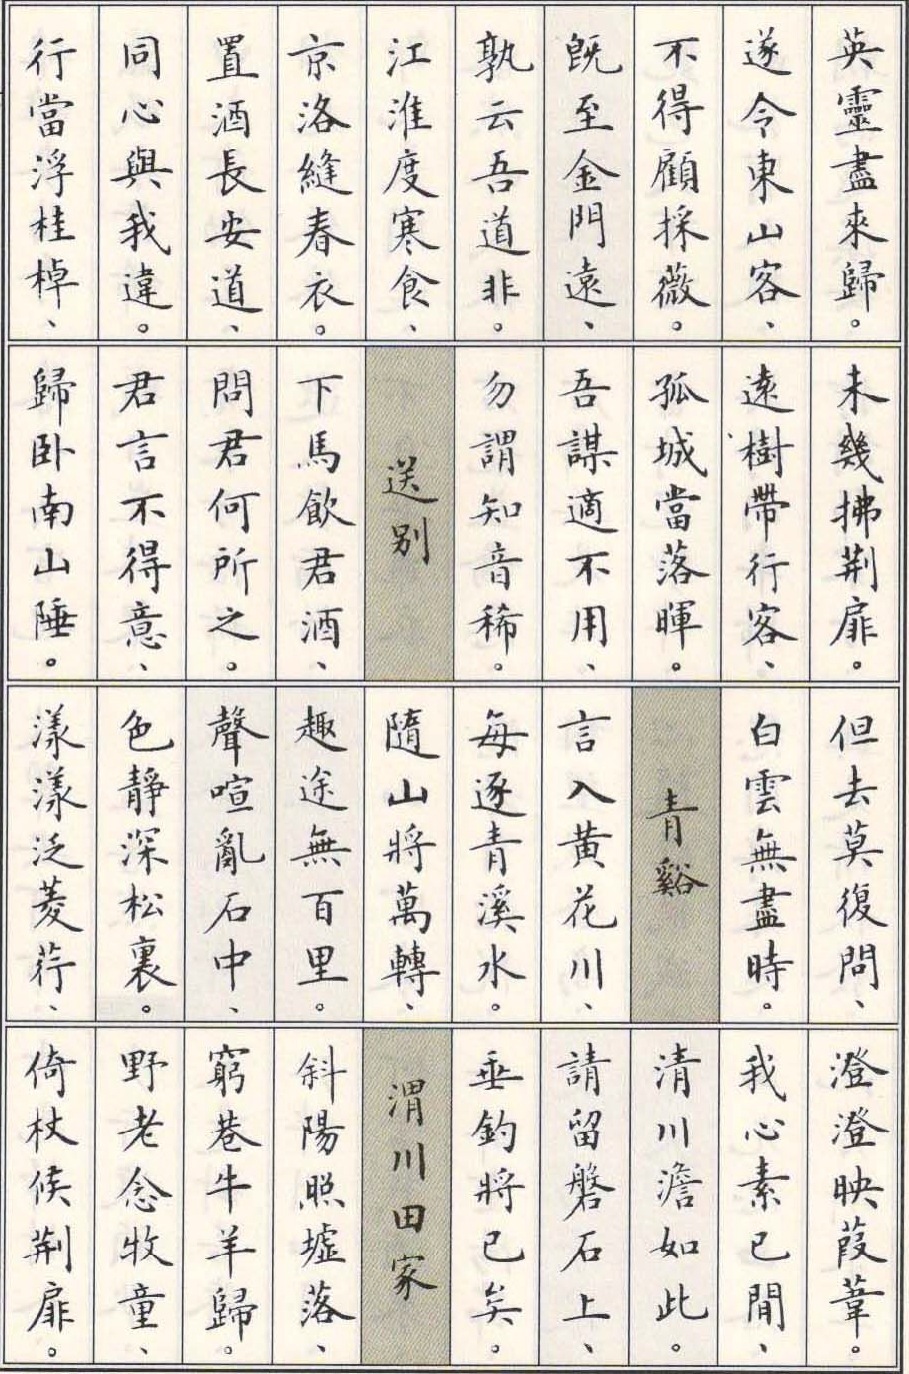 英靈盡來歸。
遂令東山客、
不得顧採薇。
既至金門遠、
孰云吾道非。
江淮度寒食、
京洛縫春衣。
置酒長安道、
同心與我違。
行當浮桂棹、
未幾拂荆扉。
遠樹帶行客、
孤城當落暉。
吾謀適不用、
勿謂知音稀。
送别
下馬飲君酒、
問君何所之。
君言不得意、
歸卧南山陲。
但去莫復問、
白雲無盡時。
青谿
言入黄花川、
每逐青溪水。
隨山將萬轉、
趣途無百里。
聲喧亂石中、
色靜深松裏。
漾漾泛菱荇、
澄澄映葭葦。
我心素已閒、
清川澹如此。
請留磐石上、
垂釣將已矣。
渭川田家
斜陽照墟落、
窮巷牛羊歸。
野老念牧童、
倚杖候荆扉。